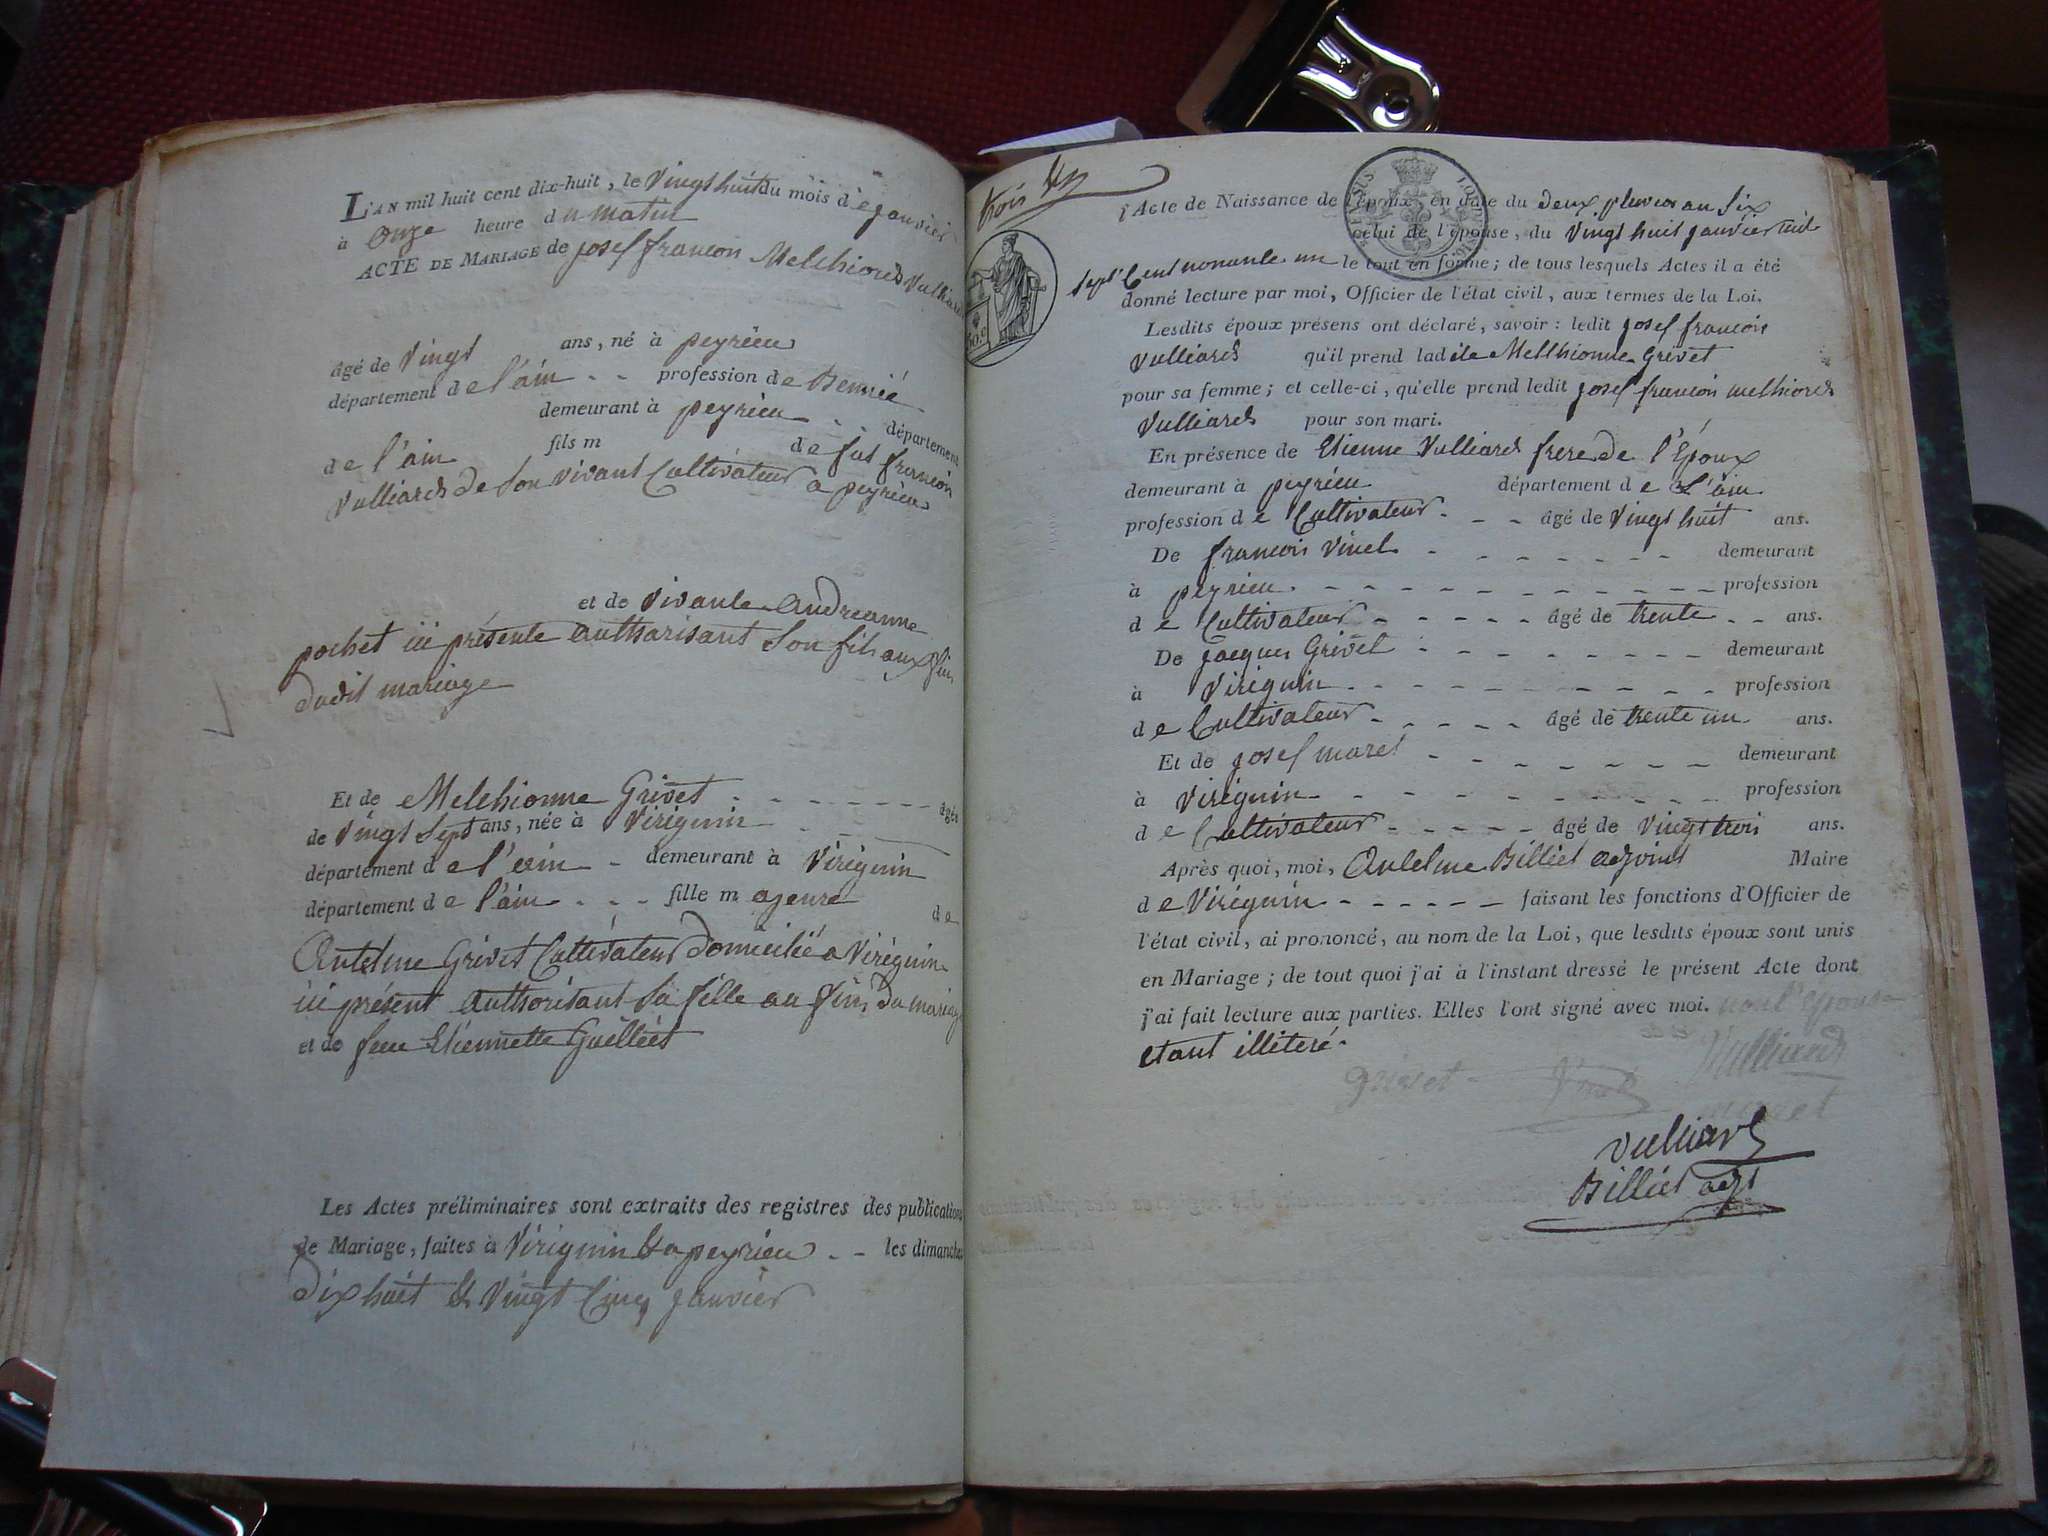 L'AN mil huit cent dix-huit, le vingt huit du mois de janvier
à onze heure du matin
ACTE DE MARIAGE de josef francois Melchiord Vulliard
âgé de vingt ans, né à peyrieu
département de l'ain - - profession de
demeurant à peyrieu - - département
de l'ain fils m de fut francois
Vulliard de son vivant Cultivateur a peyrieu
et de vivante andreanne
pochet ici présenteautharisant son fils aux fins
dudit mariage
Et de Melchionne Grivet - - - - - - - âgée
de vingt sept ans, née à Virignin
département de l'ain - demeurant à Virignin
département de l'ain - - - fille m ageure de
Antelme Grivet Cultivateur domicilié a Virignin
ici présent authorisant sa fille au fins du mariage
et de feue Etiennette Guilliet
Les Actes préliminaires sont extraits des registres des publications
de Mariage, faites à Virignin & a peyrieu - - les dimanches
dix huit & vingt cinq janvier
trois
l'Acte de Naissance de l'époux, en date du deux pluvios an six
celui de l'épouse, du vingt huit janvier mil
sept Cent nonante un le tout en forme; de tous lesquels Actes il a été
donné lecture par moi, Officier de l'état civil, aux termes de la Loi.
Lesdits époux présens ont déclaré, savoir: ledit josef francois
Vulliard qu'il prend ladite Melchionne Grivet
pour sa femme; et celle-ci, qu'elle prend ledit josef francois melchiord
Vulliard pour son mari.
En présence de Etienne Vulliard frere de l'Époux
demeurant à peyrieu département de L'ain
profession de Cultivateur - - - âgé de vingt huit ans.
De francois Vinet - - - - - - - - demeurant
à peyrieu - - - - - - - - - - - - - profession
de Cultivateur - - - - - - âgé de trente - - ans.
De jacques Grivet - - - - - - - - - demeurant
à Virignin - - - - - - - - - - - profession
de Cultivateur - - - - - âgé de trente un ans.
Et de josef maret - - - - - - - demeurant
à Virignin - - - - - - - - - - - profession
de Cultivateur - - - - - âgé de vingt trois ans.
Après quoi, moi, Antelme Billiet adjoint Maire
de Virignin - - - - - - faisant les fonctions d'Officier de
l'état civil, ai prononcé, au nom de la Loi, que lesdits époux sont unis
en Mariage; de tout quoi j'ai à l'instant dressé le présent Acte dont
j'ai fait lecture aux parties. Elles l'ont signé avec moi. non l'épouse
etant illiteré.
Vulliard
grivet
Vulliard
Billiet adjt